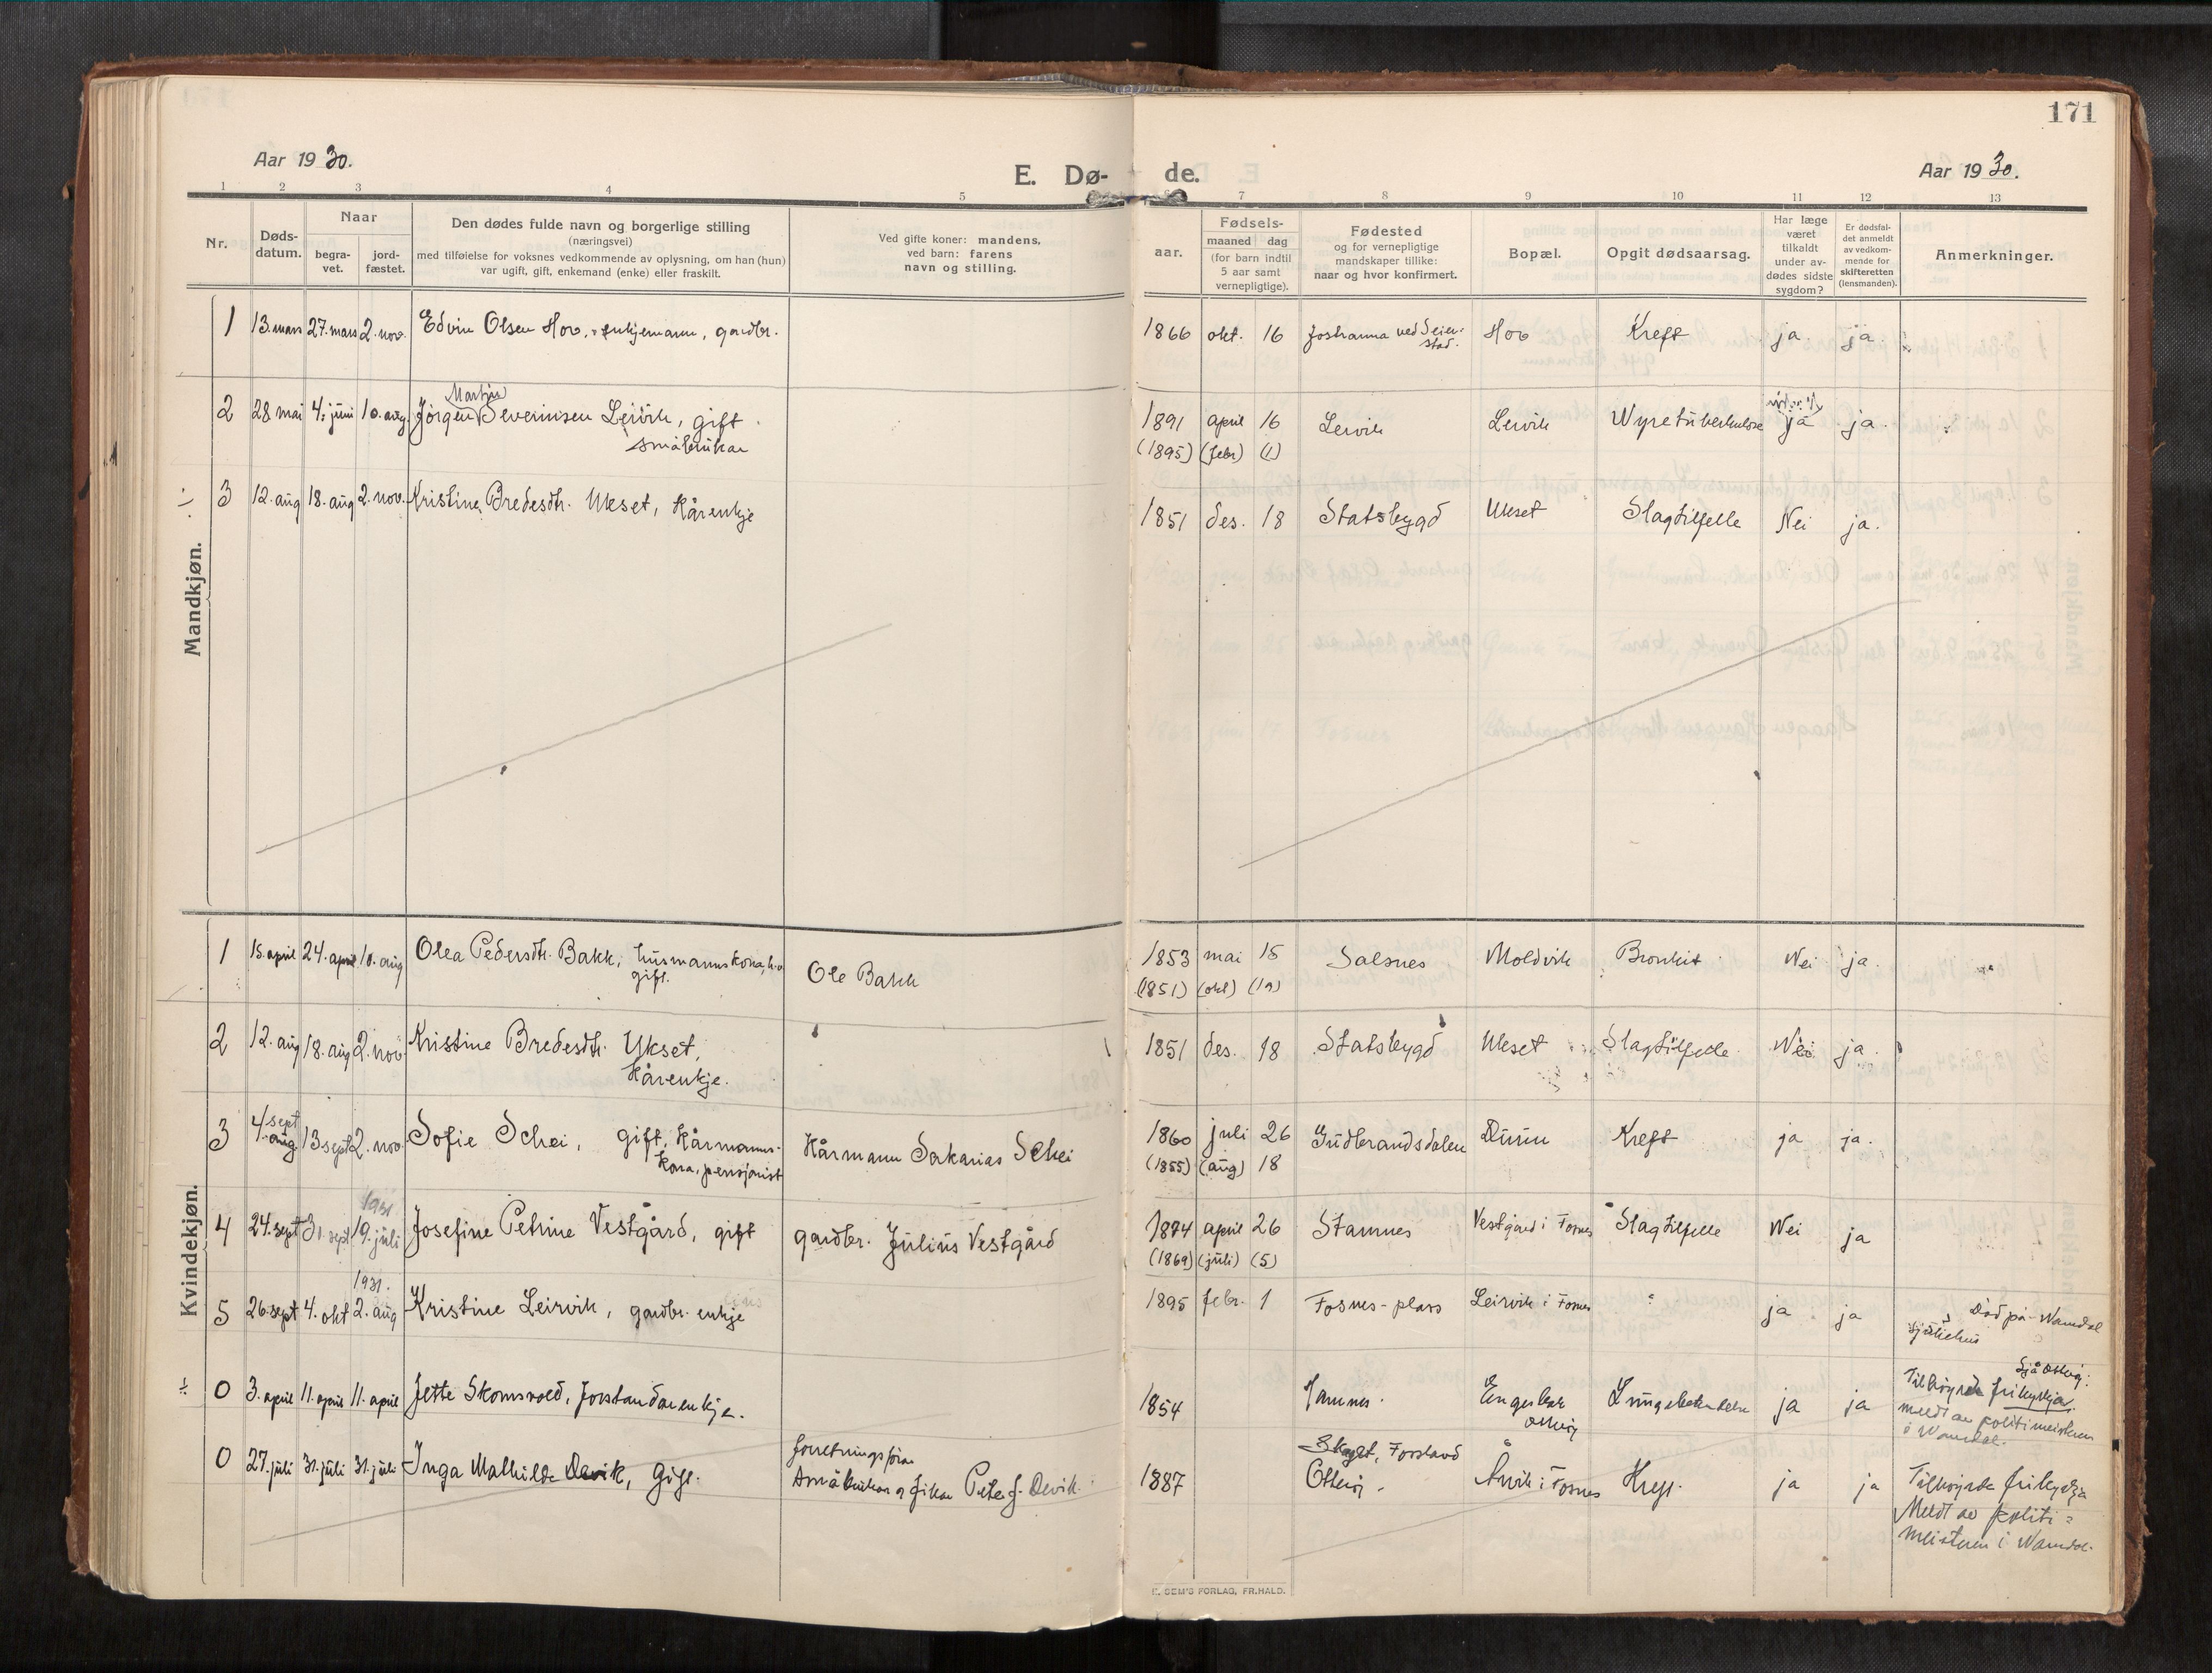 171
Aar 1930.
E. Dø-
de.
Aar 1930.
1 2 3 4 5 7 8 9 10 11 12 13
Nr.
Døds-
datum.
Naar
begra-
vet.
jord-
fæstet.
Den dødes fulde navn og borgerlige stilling
(næringsvei)
med tilføielse for voksnes vedkommende av oplysning, om han (hun)
var ugift, gift, enkemand (enke) eller fraskilt.
Ved gifte koner: mandens,
ved barn: farens
navn og stilling.
Fødsels-
aar.
maaned
dag
(for barn indtil
5 aar samt
vernepligtige).
Fødested
og for vernepligtige
mandskaper tillike:
naar og hvor konfirmert.
Bopæl.
Opgit dødsaarsag.
Har læge
været
tilkaldt
under av-
dødes sidste
sygdom?
Er dødsfal-
det anmeldt
av vedkom-
mende for
skifteretten
(lensmanden).
Anmerkninger.
Mandkjøn.
1 13. mars 27. mars 2. nov. Edvin Olsen Hov, enkjemann, gardbr. 1866 okt. 16 Jostranna ved Seier-
stad. Hov Kreft ja. ja.
Martin
2 28 mai 4. juni 10. aug. Jörgen Severinsen Leirvik, gift 1891 april 16 Leirvik Leirvik Nyretuberkulose ja ja.
småbrukar (1895) (febr) (1)
÷ 3 12. aug 18. aug 2. nov. Kristine Bredesdtr. Ukset, Kårenkje 1851 des. 18 Statsbygd Ukset Slagtilfelle Nei ja.
Kvindekjøn.
1 15. april 24. april 10. aug Olea Pedersdtr. Bakk, husmannskona, Ole Bakk 1853 mai 15 Salsnes Moldvik Bronkit Nei ja.
gift. (1851) (okt) (19)
2 12. aug 18. aug 2. nov Kristine Bredesdtr. Ukset, 1851 des. 18 Statsbygd Ukset Slagtilfelle Nei ja.
Kårenkje.
sept
3 4. aug 13 sept 2. nov Sofie Schei, gift, Kårmanns- Kårmann Sakarias Schei 1860 juli 26 Gudbrandsdalen Duun Kreft ja ja.
kona, pensjonist (1855) (aug) 18
1931
4 24. sept 30. sept 19. juli Josefine Petrine Vestgård, gift gardbr. Julius Vestgård 1874 april 26 Stamnes Vestgård i Fosnes Slagtilfelle Nei ja
(1869) (juli) (5)
1931.
5 26. sept 4. okt 2. aug Kristine Leirvik, gardbr. enkje 1895 febr. 1 Fosnes-plass Leirvik i Fosnes ja ja Död på Namdal
sjukehus
÷ 0 3. april 11. april 11. april Jette Skomsvold, Forstandarenkje. 1854 Otteröy Lungebetendelse ja ja Sjå Otteröy:
Tilhöyrde frikyrkja.
meldt av politimeisteren
i Namdal.
0 27. juli 31. juli 31. juli Inga Mathilde Devik, Gift. forretningsförar
småbrukar og fiskar Peter J. Devik. 1887 Forsland
Otteröy. i Fosnes Kreft. ja ja Tilhöyrde frikyrkja
Meldt av politi=
meisteren i Namdal.
E. SEM'S FORLAG, FR.HALD.